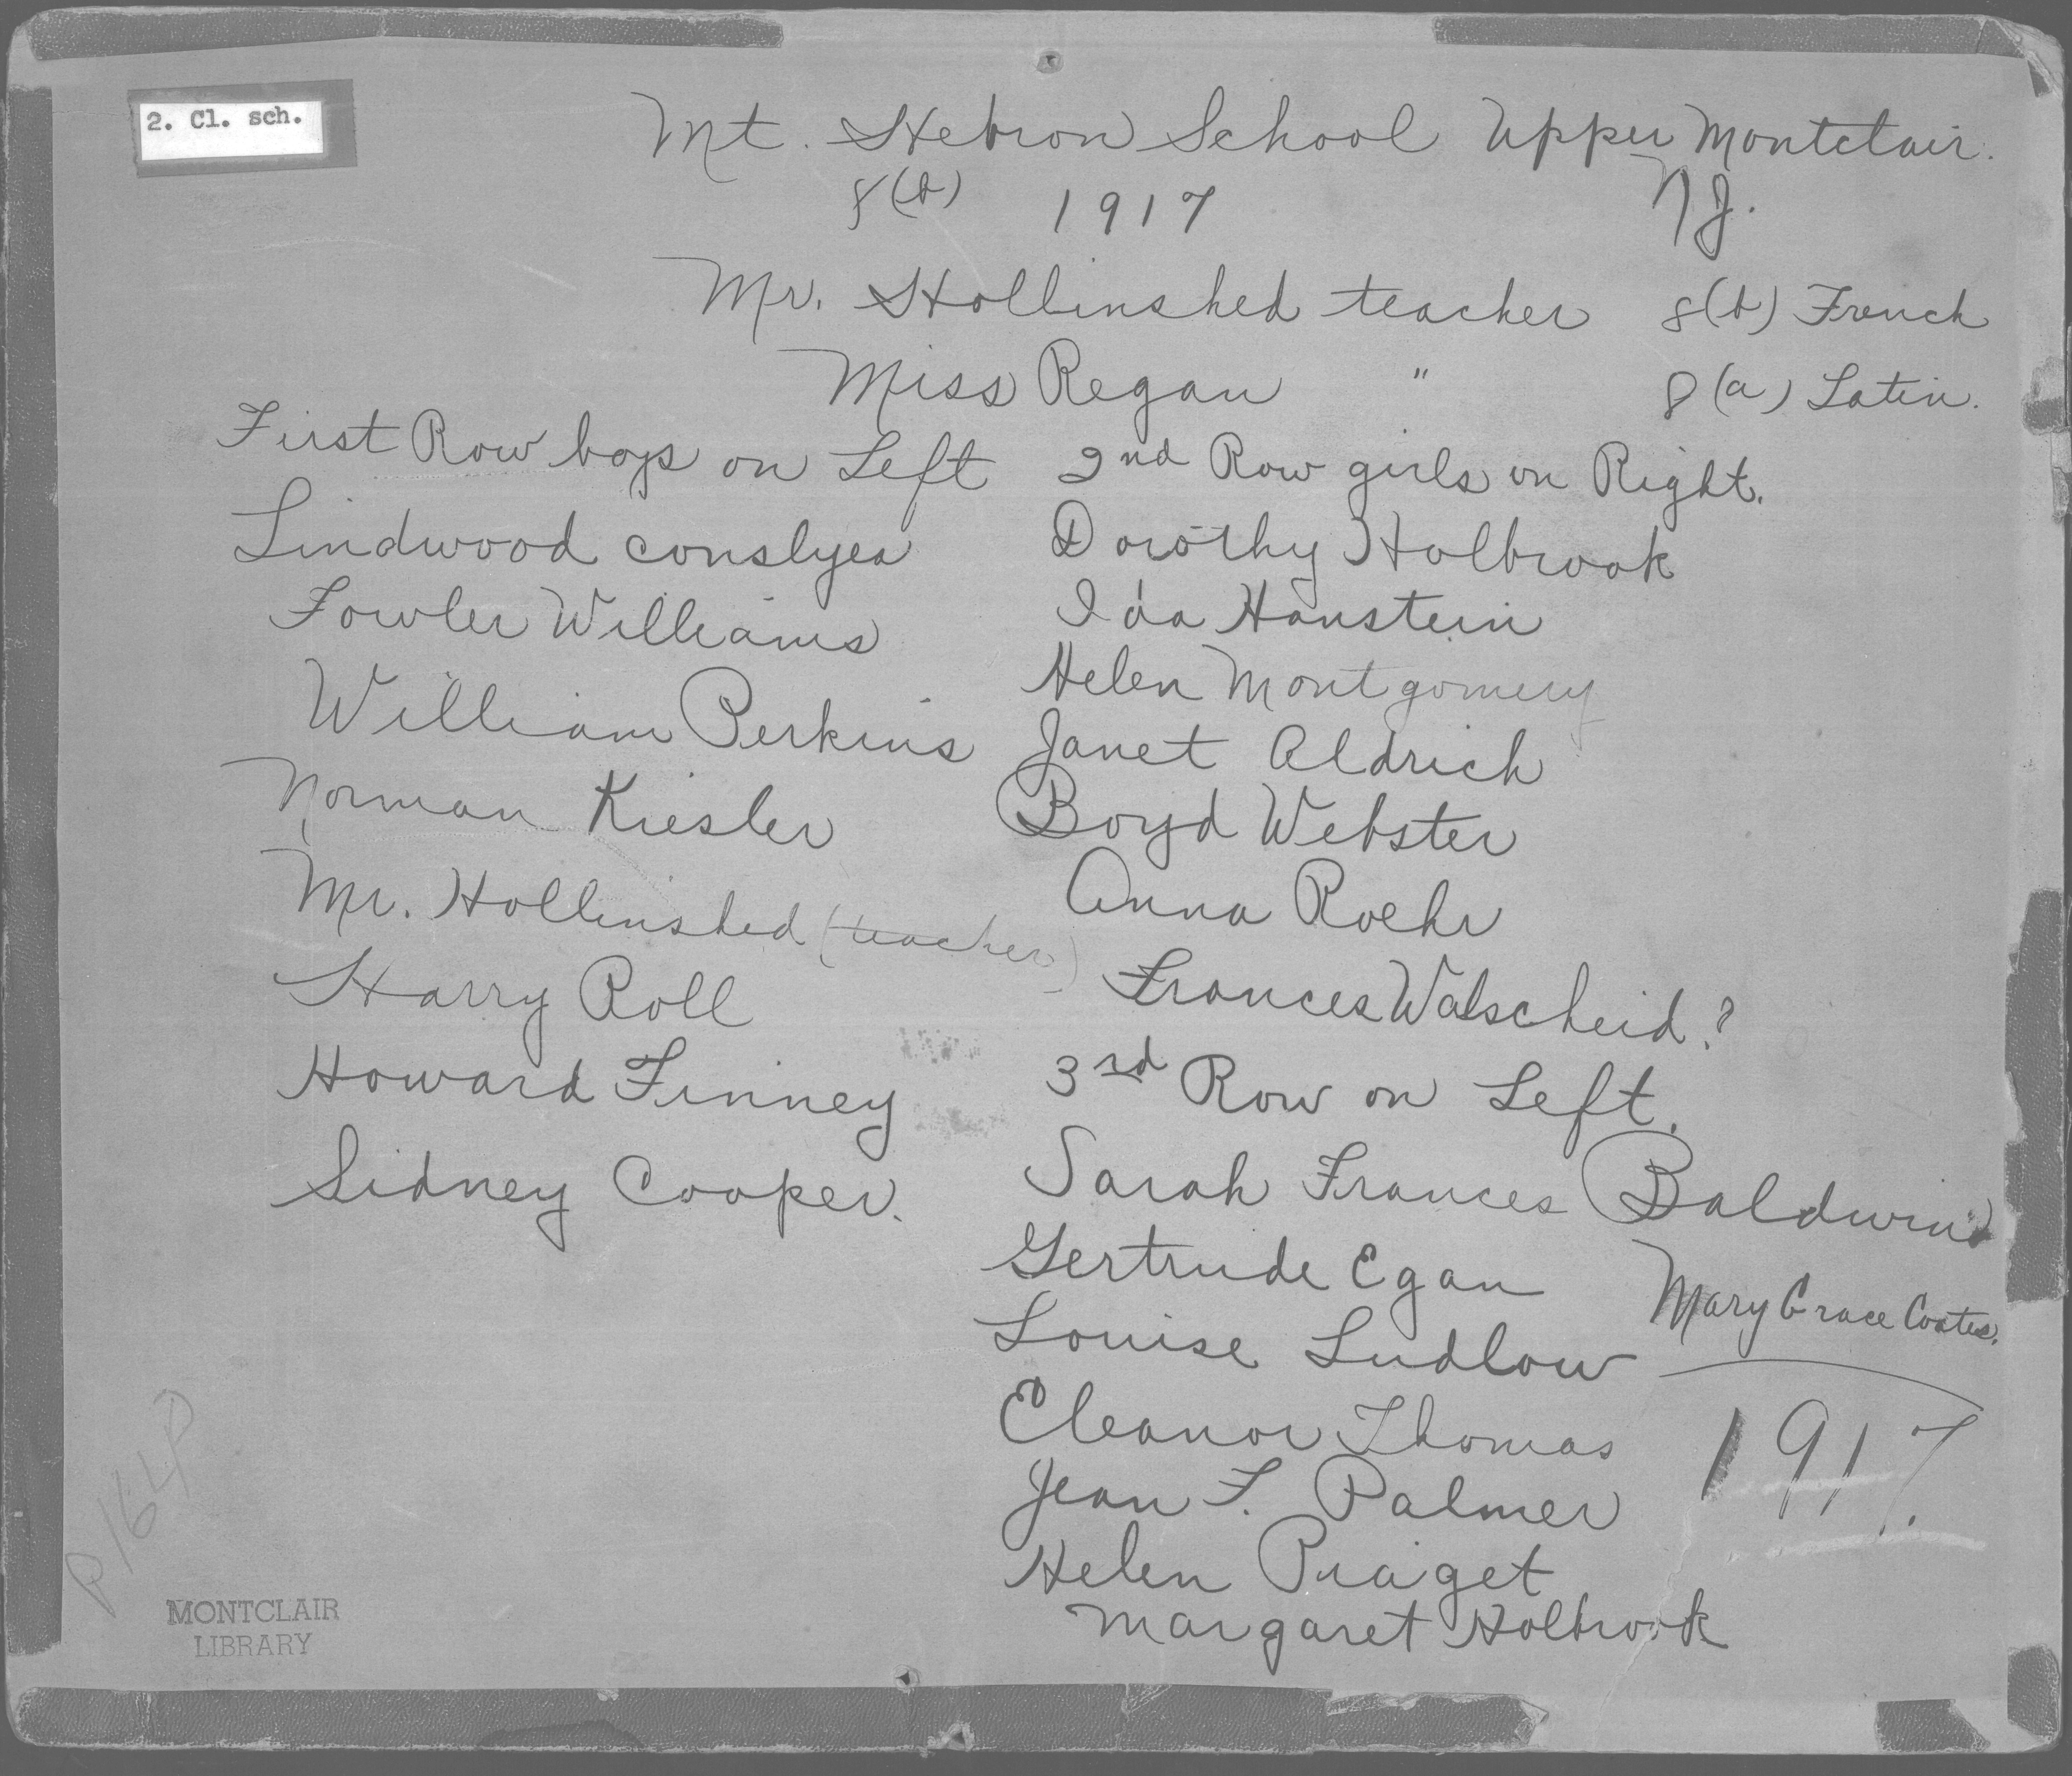 2. Cl. sch.
Mt. Hebron School Upper Montclair.
8(b) 1917 NJ.
Mr. Hollinshed teacher 8(b) French
Miss Regan " 8(a) Latin.
First Row boys on Left
Lindwood conslyea
Fowler Williams
William Perkins
Norman Kiesler
Mr. Hollinshed (teacher)
Harry Roll
Howard Finney
Sidney Cooper.
2nd Row girls on Right.
Dorothy Holbrook
Ida Hanstein
Helen Montgomery
Janet Aldrich
Boyd Webster
Anna Roehr
Frances Walscheid?
3rd Row on Left.
Sarah Frances Baldwin
Gertrude Egan
Mary Grace Coates.
Louise Ludlow
Eleanor Thomas
1917.
Jean F. Palmer
Helen Piaget
Margaret Holbrook
P164P
MONTCLAIR
LIBRARY